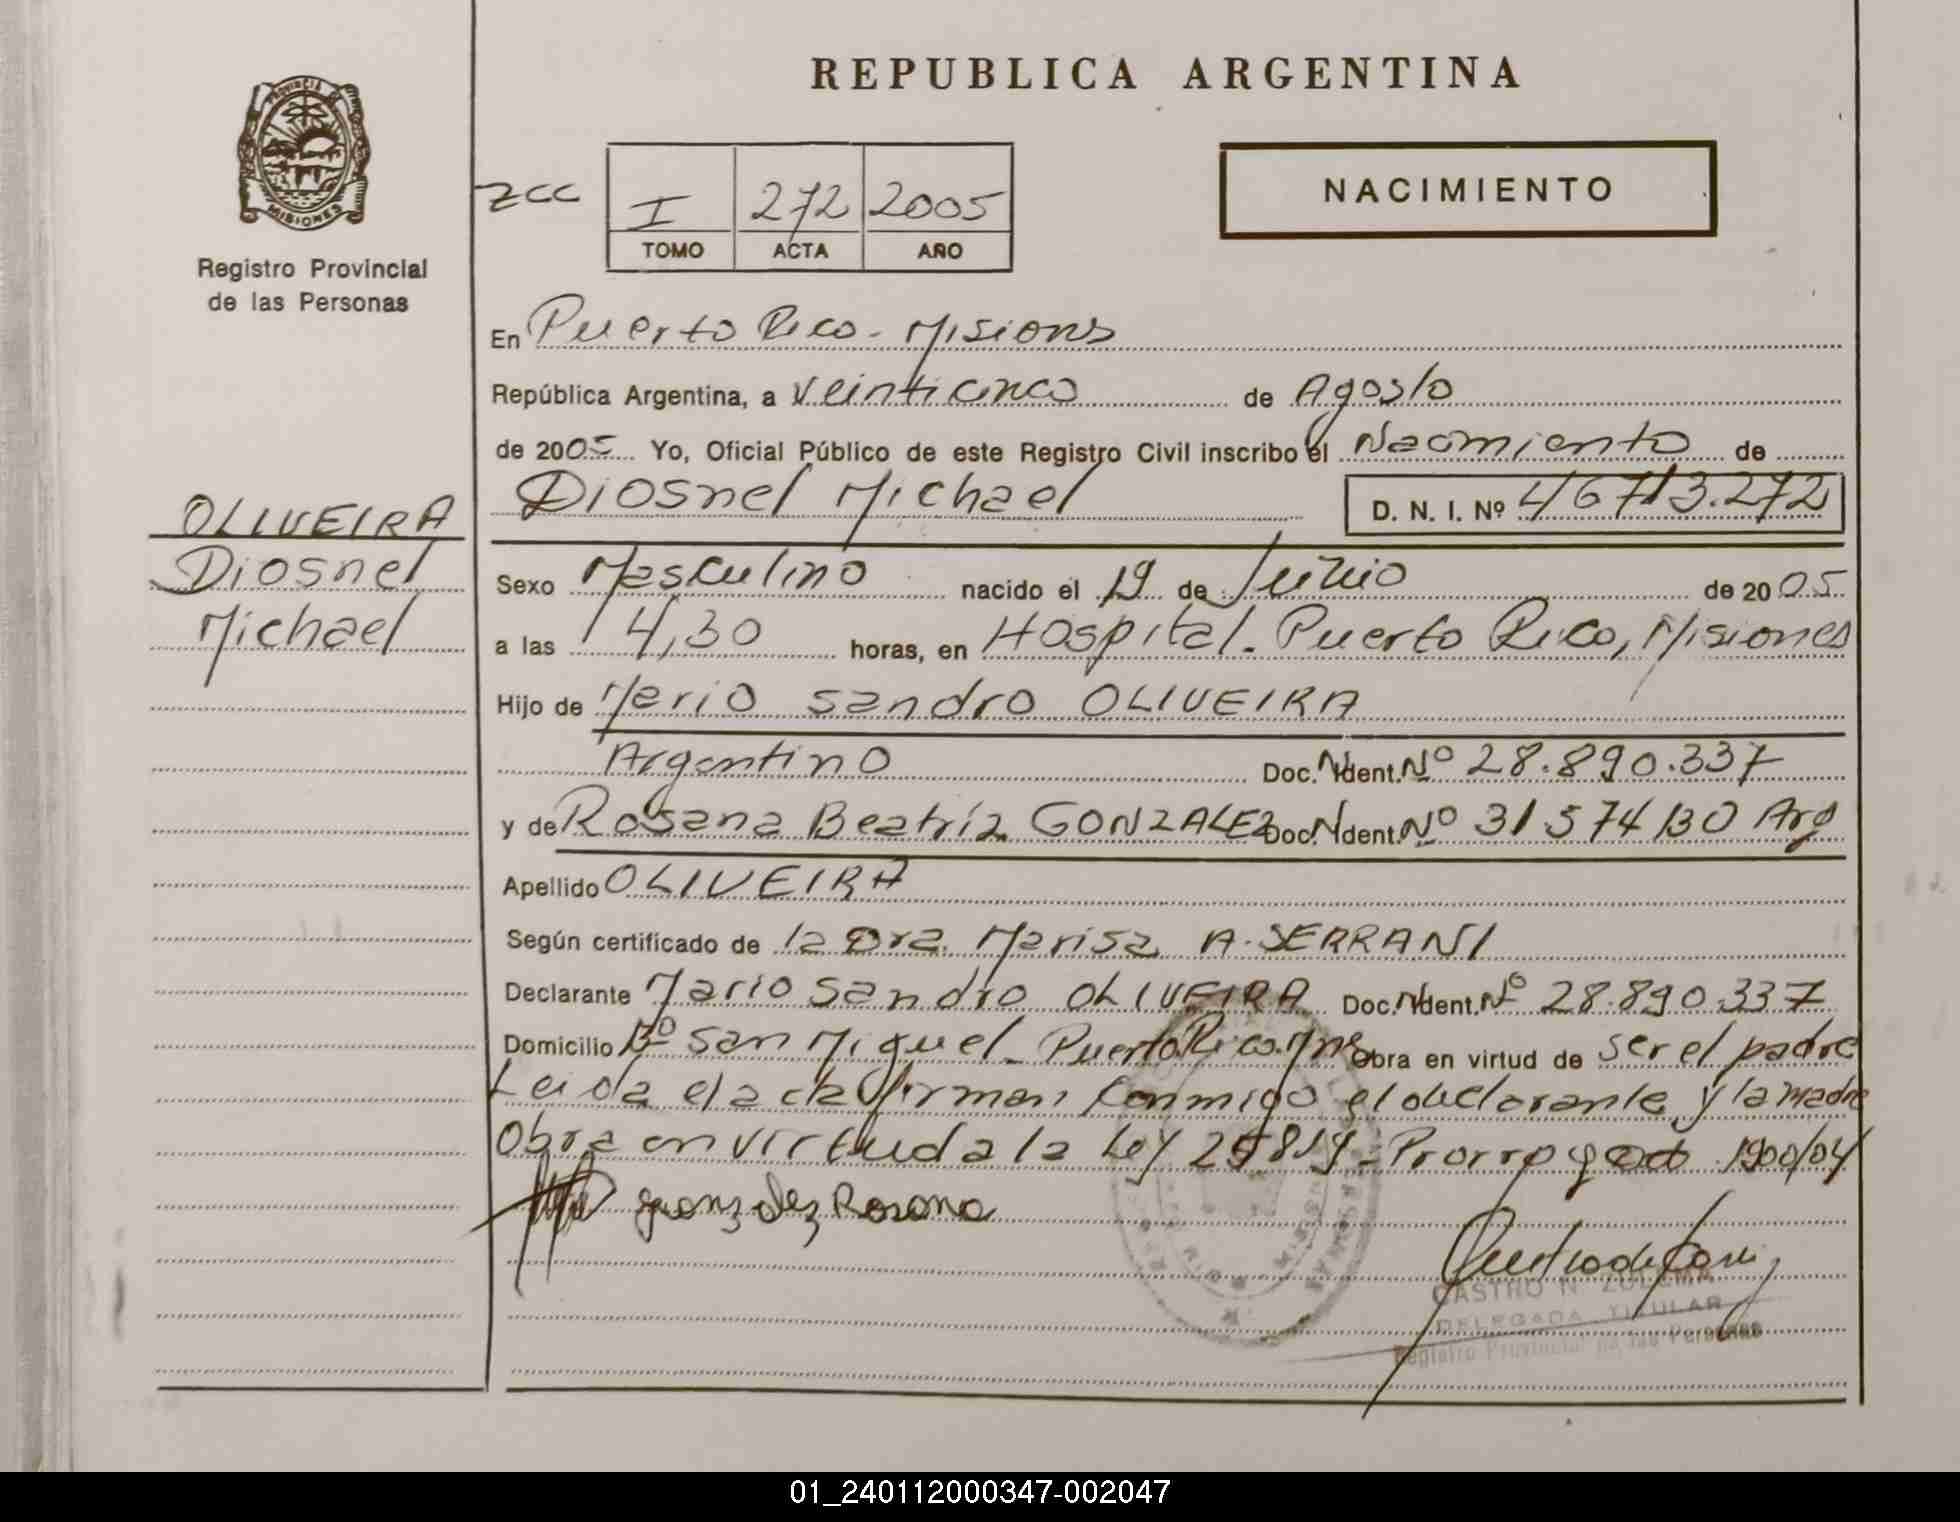 REPUBLICA ARGENTINA
PROVINCIA DE
MISIONES
Registro Provincial
de las Personas
ZCC
I 272 2005
TOMO ACTA AÑO
NACIMIENTO
En Puerto Rico - Misions
República Argentina, a Veinticinco de Agosto
de 2005 Yo, Oficial Público de este Registro Civil inscribo el Nacimiento de
Diosnel Michael D. N. I. Nº 46713.272
OLIVEIRA
Diosnel
Michael
Sexo Masculino nacido el 19 de Junio de 2005
a las 14,30 horas, en Hospital - Puerto Rico, Misiones
Hijo de Mario Sandro OLIVEIRA
Argentino Doc. Ident. Nº 28.890.337
y de Rosana Beatriz GONZALEZ Doc. Ident. Nº 31574130 Arg
Apellido OLIVEIRA
Según certificado de la Dra. Marisa A. SERRANI
Declarante Mario Sandro OLIVEIRA Doc. Ident. Nº 28.890.337
Domicilio Bº San Miguel - Puerto Rico. Mnes Obra en virtud de ser el padre
Leida el acta firman conmigo el declarante y la madre
Obra en virtud a la Ley 25819 - Prorrogado 1900/04
Gonzalez Rosana
CASTRO N. ZULEMA
DELEGADA TITULAR
Registro Provincial de las Personas
01_240112000347-002047